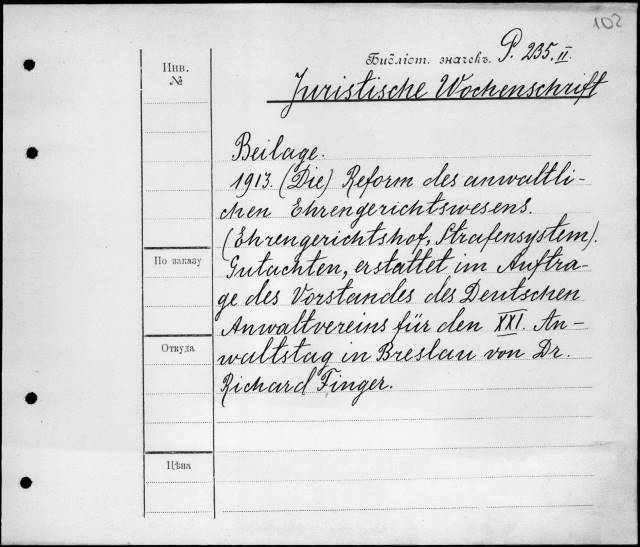 102
Библіот. значекъ. P. 235.II.
Juristische Wochenschrift
Инв.
№
Beilage.
1913. (Die) Reform des anwaltli-
chen Ehrengerichtswesens.
(Ehrengerichtshof, Strafensystem).
По заказу
Gutachten, erstattet im Auftra-
ge des Vorstandes des Deutschen
Anwaltvereins für den XXI. An-
Откуда
waltstag in Breslau von Dr.
Richard Finger.
Цѣна